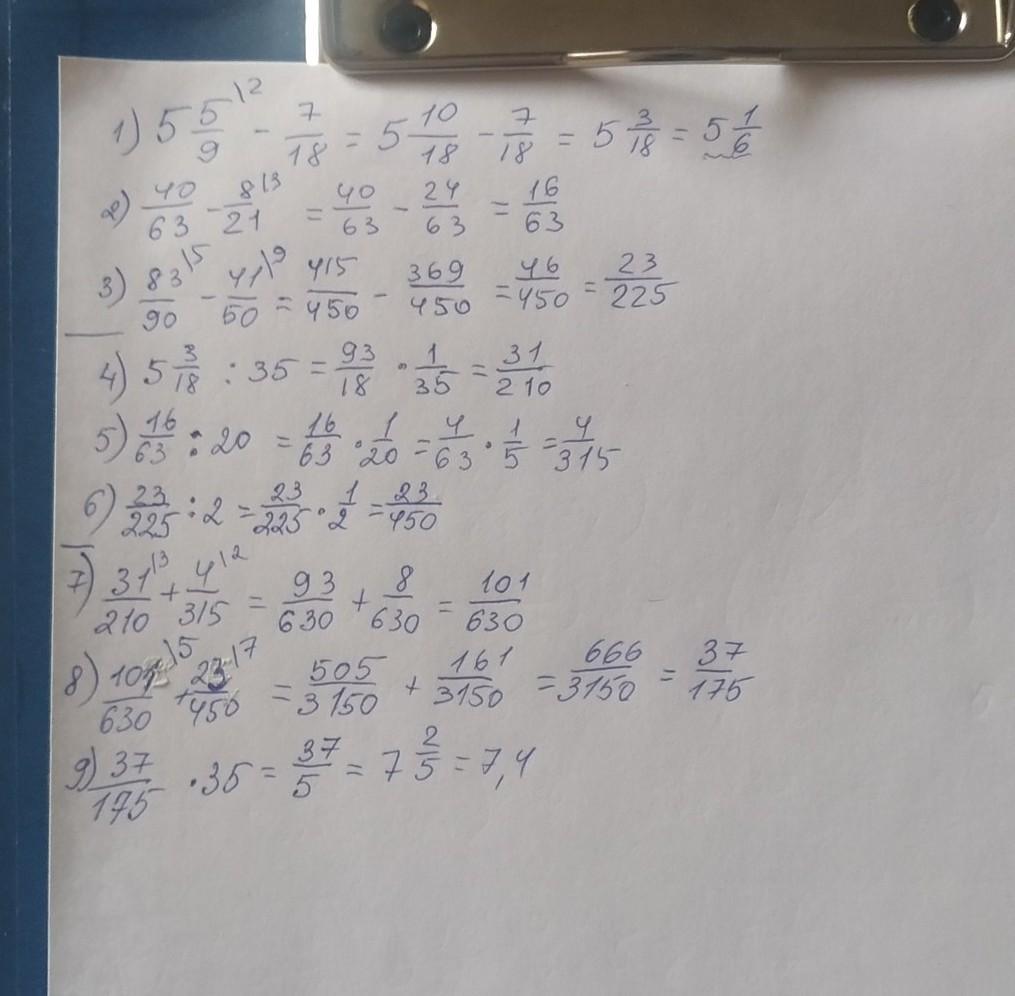 1) 5 5/9 \2 - 7/18 = 5 10/18 - 7/18 = 5 3/18 = 5 1/6
2) 40/63 - 8/21 \3 = 40/63 - 24/63 = 16/63
3) 83/90 \5 - 41/50 \9 = 415/450 - 369/450 = 46/450 = 23/225
4) 5 3/18 : 35 = 93/18 · 1/35 = 31/210
5) 16/63 : 20 = 16/63 · 1/20 = 4/63 · 1/5 = 4/315
6) 23/225 : 2 = 23/225 · 1/2 = 23/450
7) 31/210 \3 + 4/315 \2 = 93/630 + 8/630 = 101/630
8) 101/630 \5 + 23/450 \7 = 505/3150 + 161/3150 = 666/3150 = 37/175
9) 37/175 · 35 = 37/5 = 7 2/5 = 7,4